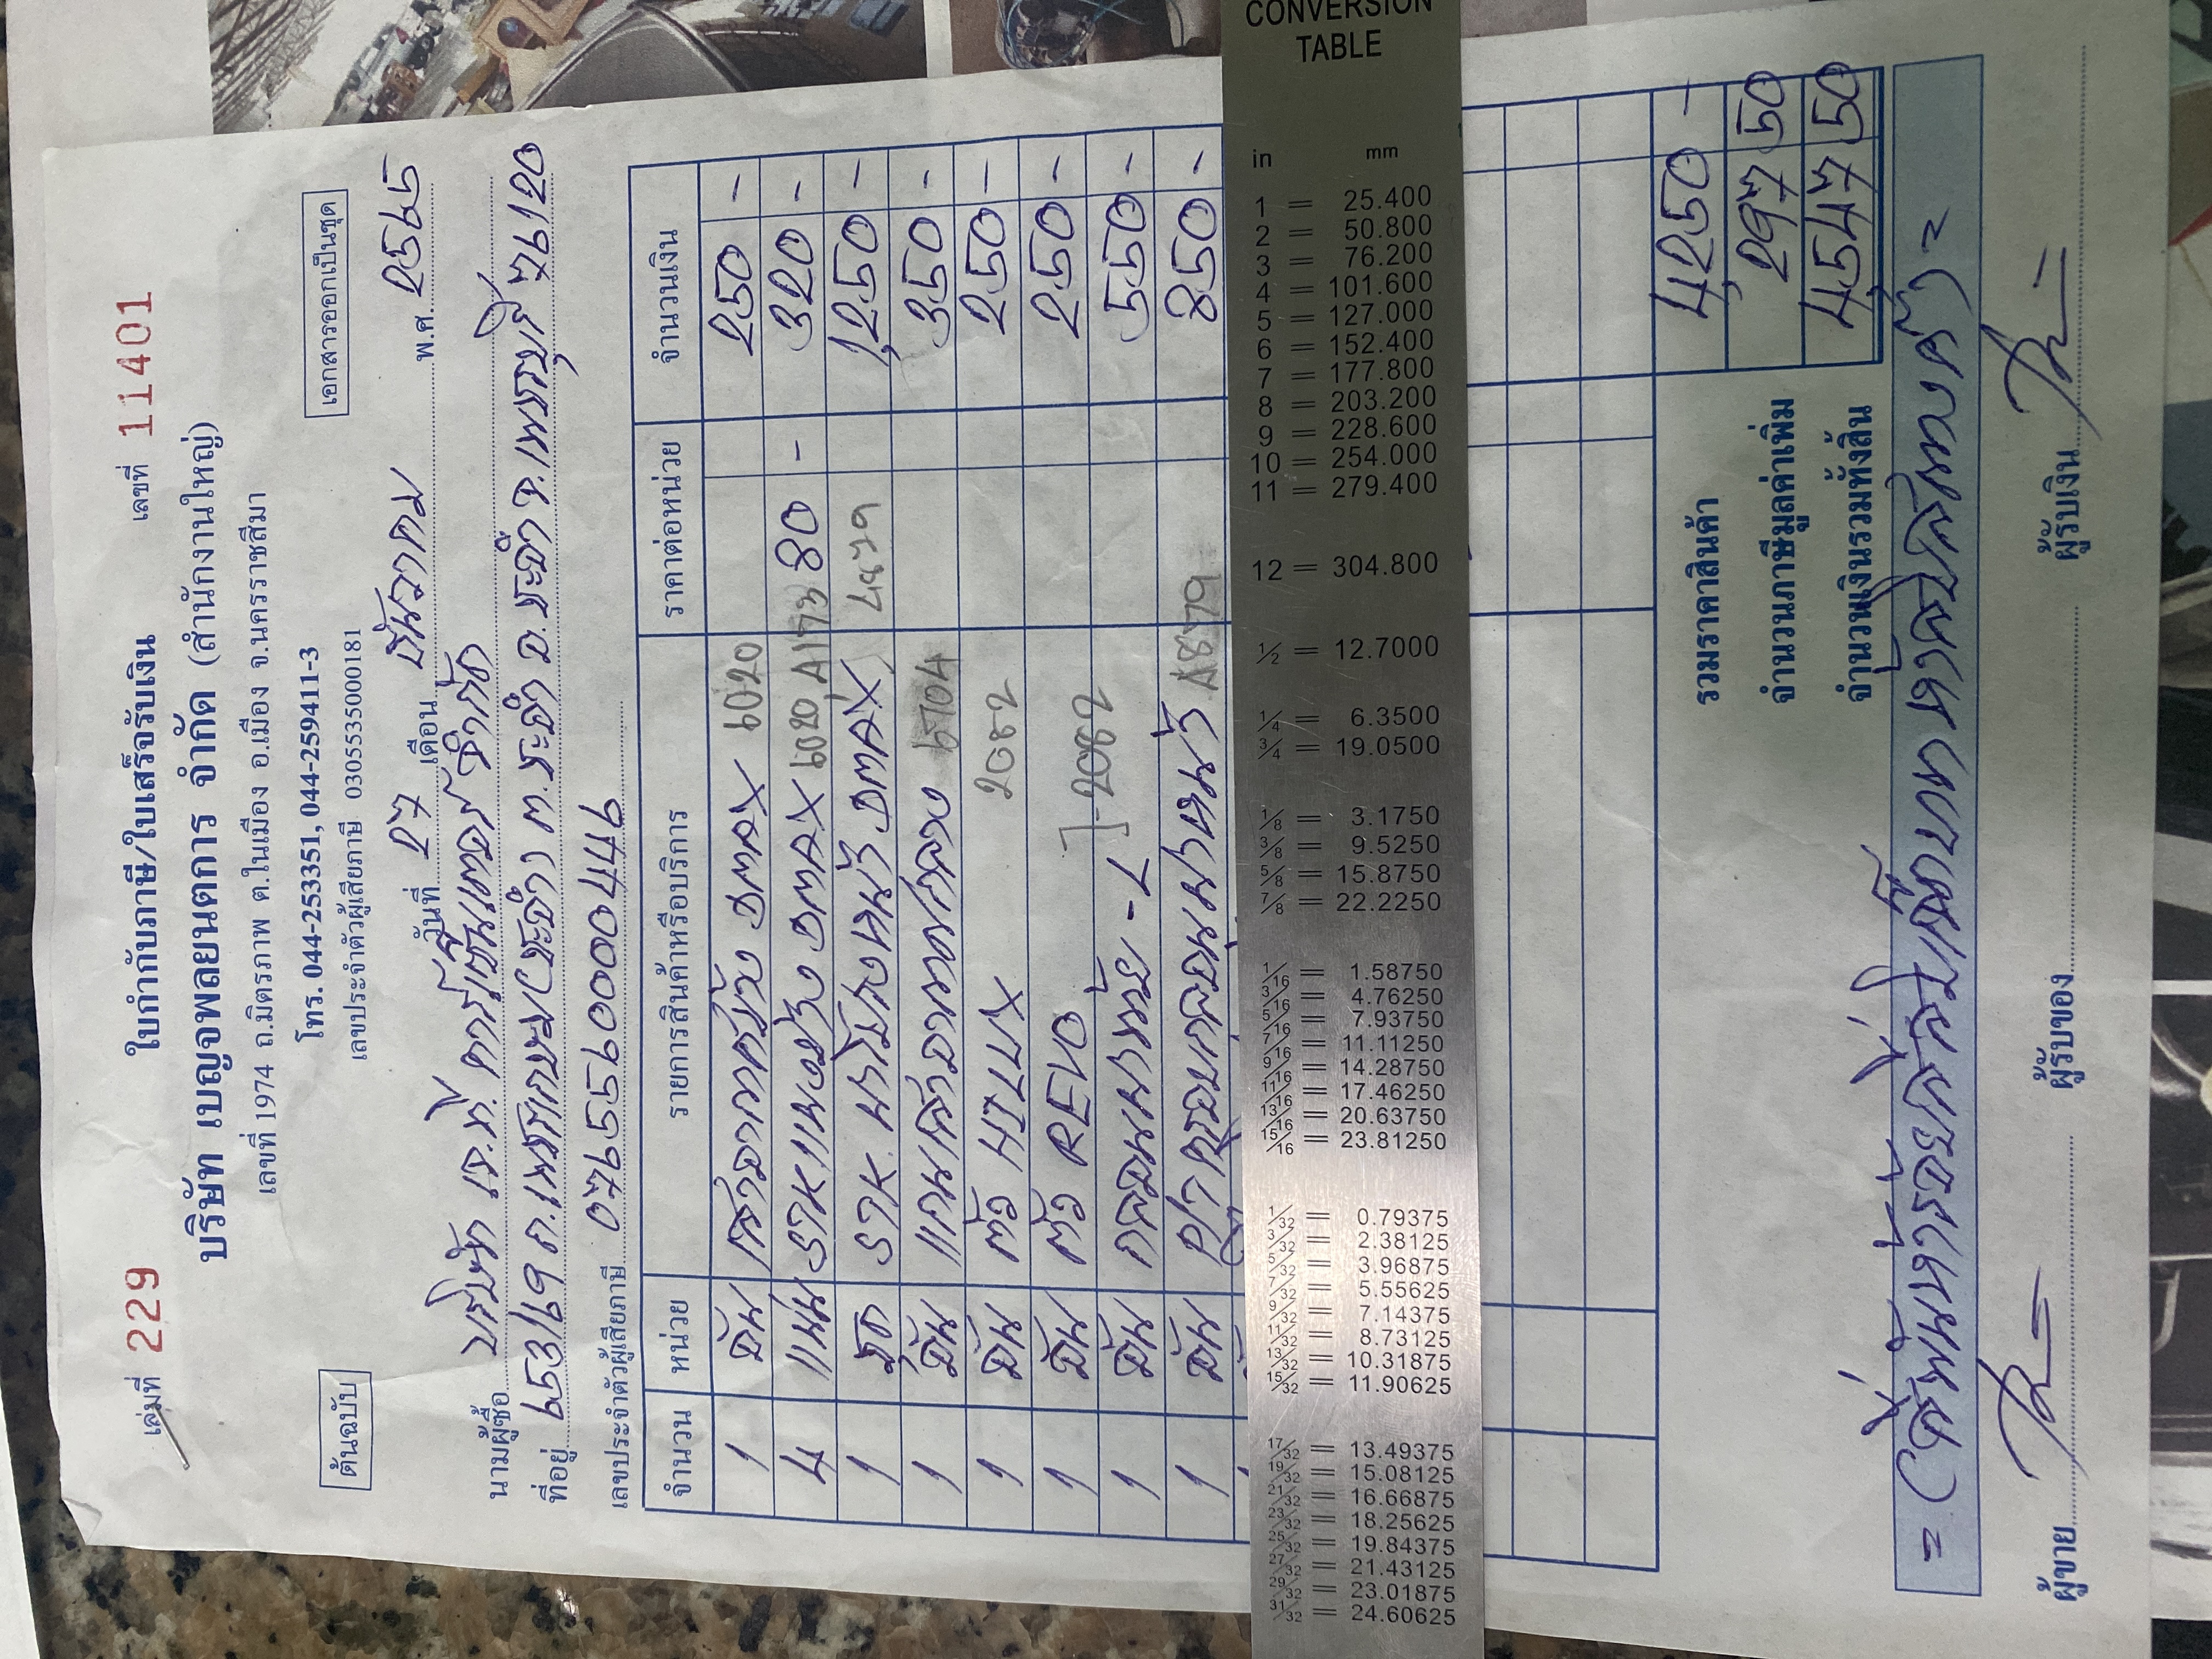 เล่มที่ 229 ใบกำกับภาษี/ใบเสร็จรับเงิน เลขที่ 11401
บริษัท เบญจพลยนตการ จำกัด (สำนักงานใหญ่)
เลขที่ 1974 ถ.มิตรภาพ ต.ในเมือง อ.เมือง จ.นครราชสีมา
โทร. 044-253351, 044-259411-3
เลขประจำตัวผู้เสียภาษี 0305535000181
ต้นฉบับ เอกสารออกเป็นชุด
วันที่ 27 เดือน ธันวาคม พ.ศ. 2565
นามผู้ซื้อ บริษัท เจ.ที. คาร์เซ็นเตอร์ จำกัด
ที่อยู่ 653/69 ถ.เพชรเกษม ต.ชะอำ อ.ชะอำ จ.เพชรบุรี 76120
เลขประจำตัวผู้เสียภาษี 0765590004479
จำนวน หน่วย รายการสินค้าหรือบริการ ราคาต่อหน่วย จำนวนเงิน
1 อัน DMAX 6020 250 -
4 แผ่น DMAX 6020 80 - 320 -
1 ชุด DMAX 1,250 -
1 อัน 350 -
1 อัน ตัว HILUX 2082 250 -
1 อัน ตัว REVO 2082 250 -
1 อัน 550 -
1 อัน 850 -
รวมราคาสินค้า 4,250 -
จำนวนภาษีมูลค่าเพิ่ม 297 50
จำนวนเงินรวมทั้งสิ้น 4,547 50
= (สี่พันห้าร้อยสี่สิบเจ็ดบาทห้าสิบสตางค์) =
ผู้ขาย ผู้รับของ ผู้รับเงิน
CONVERSION
TABLE
in mm
1 = 25.400
2 = 50.800
3 = 76.200
4 = 101.600
5 = 127.000
6 = 152.400
7 = 177.800
8 = 203.200
9 = 228.600
10 = 254.000
11 = 279.400
12 = 304.800
1/2 = 12.7000
1/4 = 6.3500
3/4 = 19.0500
1/8 = 3.1750
3/8 = 9.5250
5/8 = 15.8750
7/8 = 22.2250
1/16 = 1.58750
3/16 = 4.76250
5/16 = 7.93750
7/16 = 11.11250
9/16 = 14.28750
11/16 = 17.46250
13/16 = 20.63750
15/16 = 23.81250
1/32 = 0.79375
3/32 = 2.38125
5/32 = 3.96875
7/32 = 5.55625
9/32 = 7.14375
11/32 = 8.73125
13/32 = 10.31875
15/32 = 11.90625
17/32 = 13.49375
19/32 = 15.08125
21/32 = 16.66875
23/32 = 18.25625
25/32 = 19.84375
27/32 = 21.43125
29/32 = 23.01875
31/32 = 24.60625